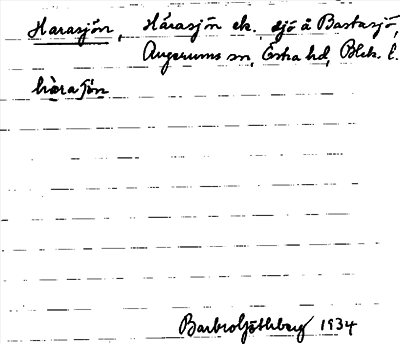 Harasjön, Härasjön ek. sjö å Bastasjö,
Augerums sn, Östra hd, Blek. l.
hàraʃön
Barbro Göthberg 1934